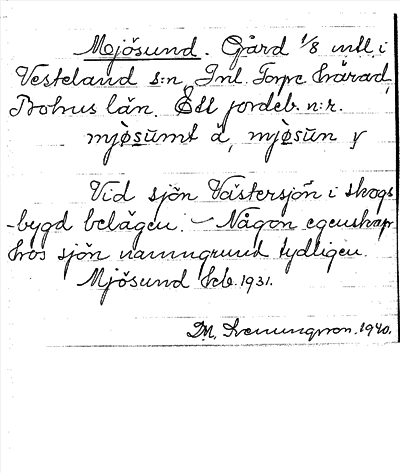 Mjösund. Gård 1/8 mtl i
Vesteland s:n, Inl. Torpe härad,
Bohus län. Ett jordeb. n:r.
mjøsūmt ä, mjøsūn γ
Vid sjön Västersjön i skogs
-bygd belägen. – Någon egenskap
hos sjön namngrund tydligen.
Mjösund kb. 1931.
D.M. Svenungsson. 1940.